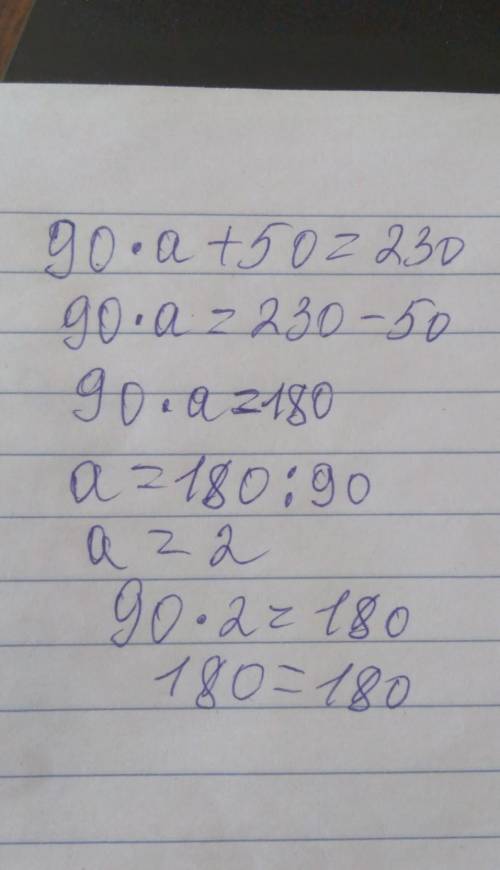 90·a+50=230
90·a=230-50
90·a=180
a=180:90
a=2
90·2=180
180=180